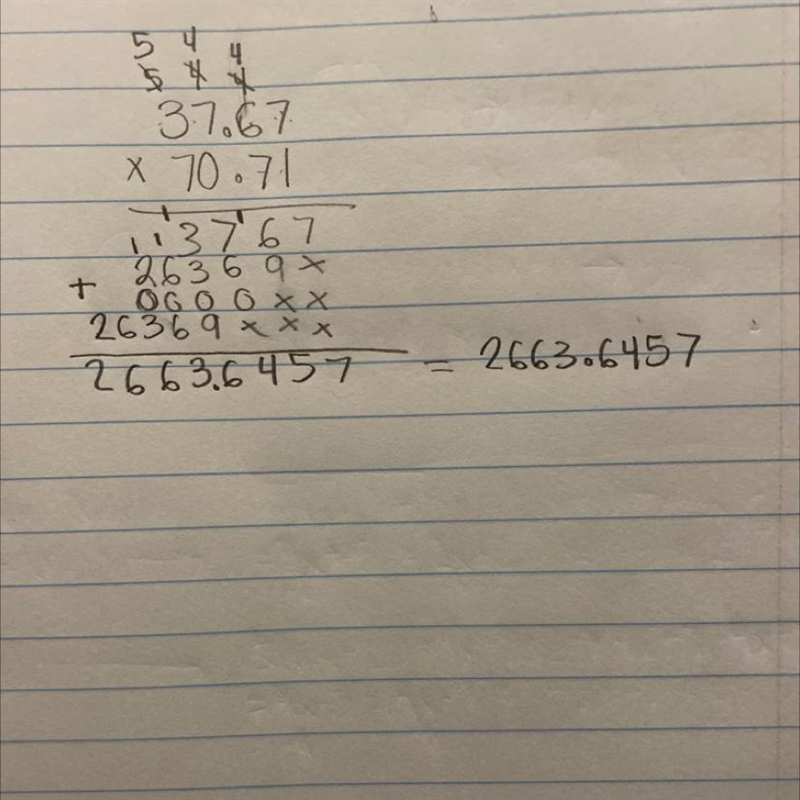 5 4 4
5 4 4
37.67
x 70.71
3767
11
+ 26369x
0000xx
26369xxx
2663.6457 = 2663.6457